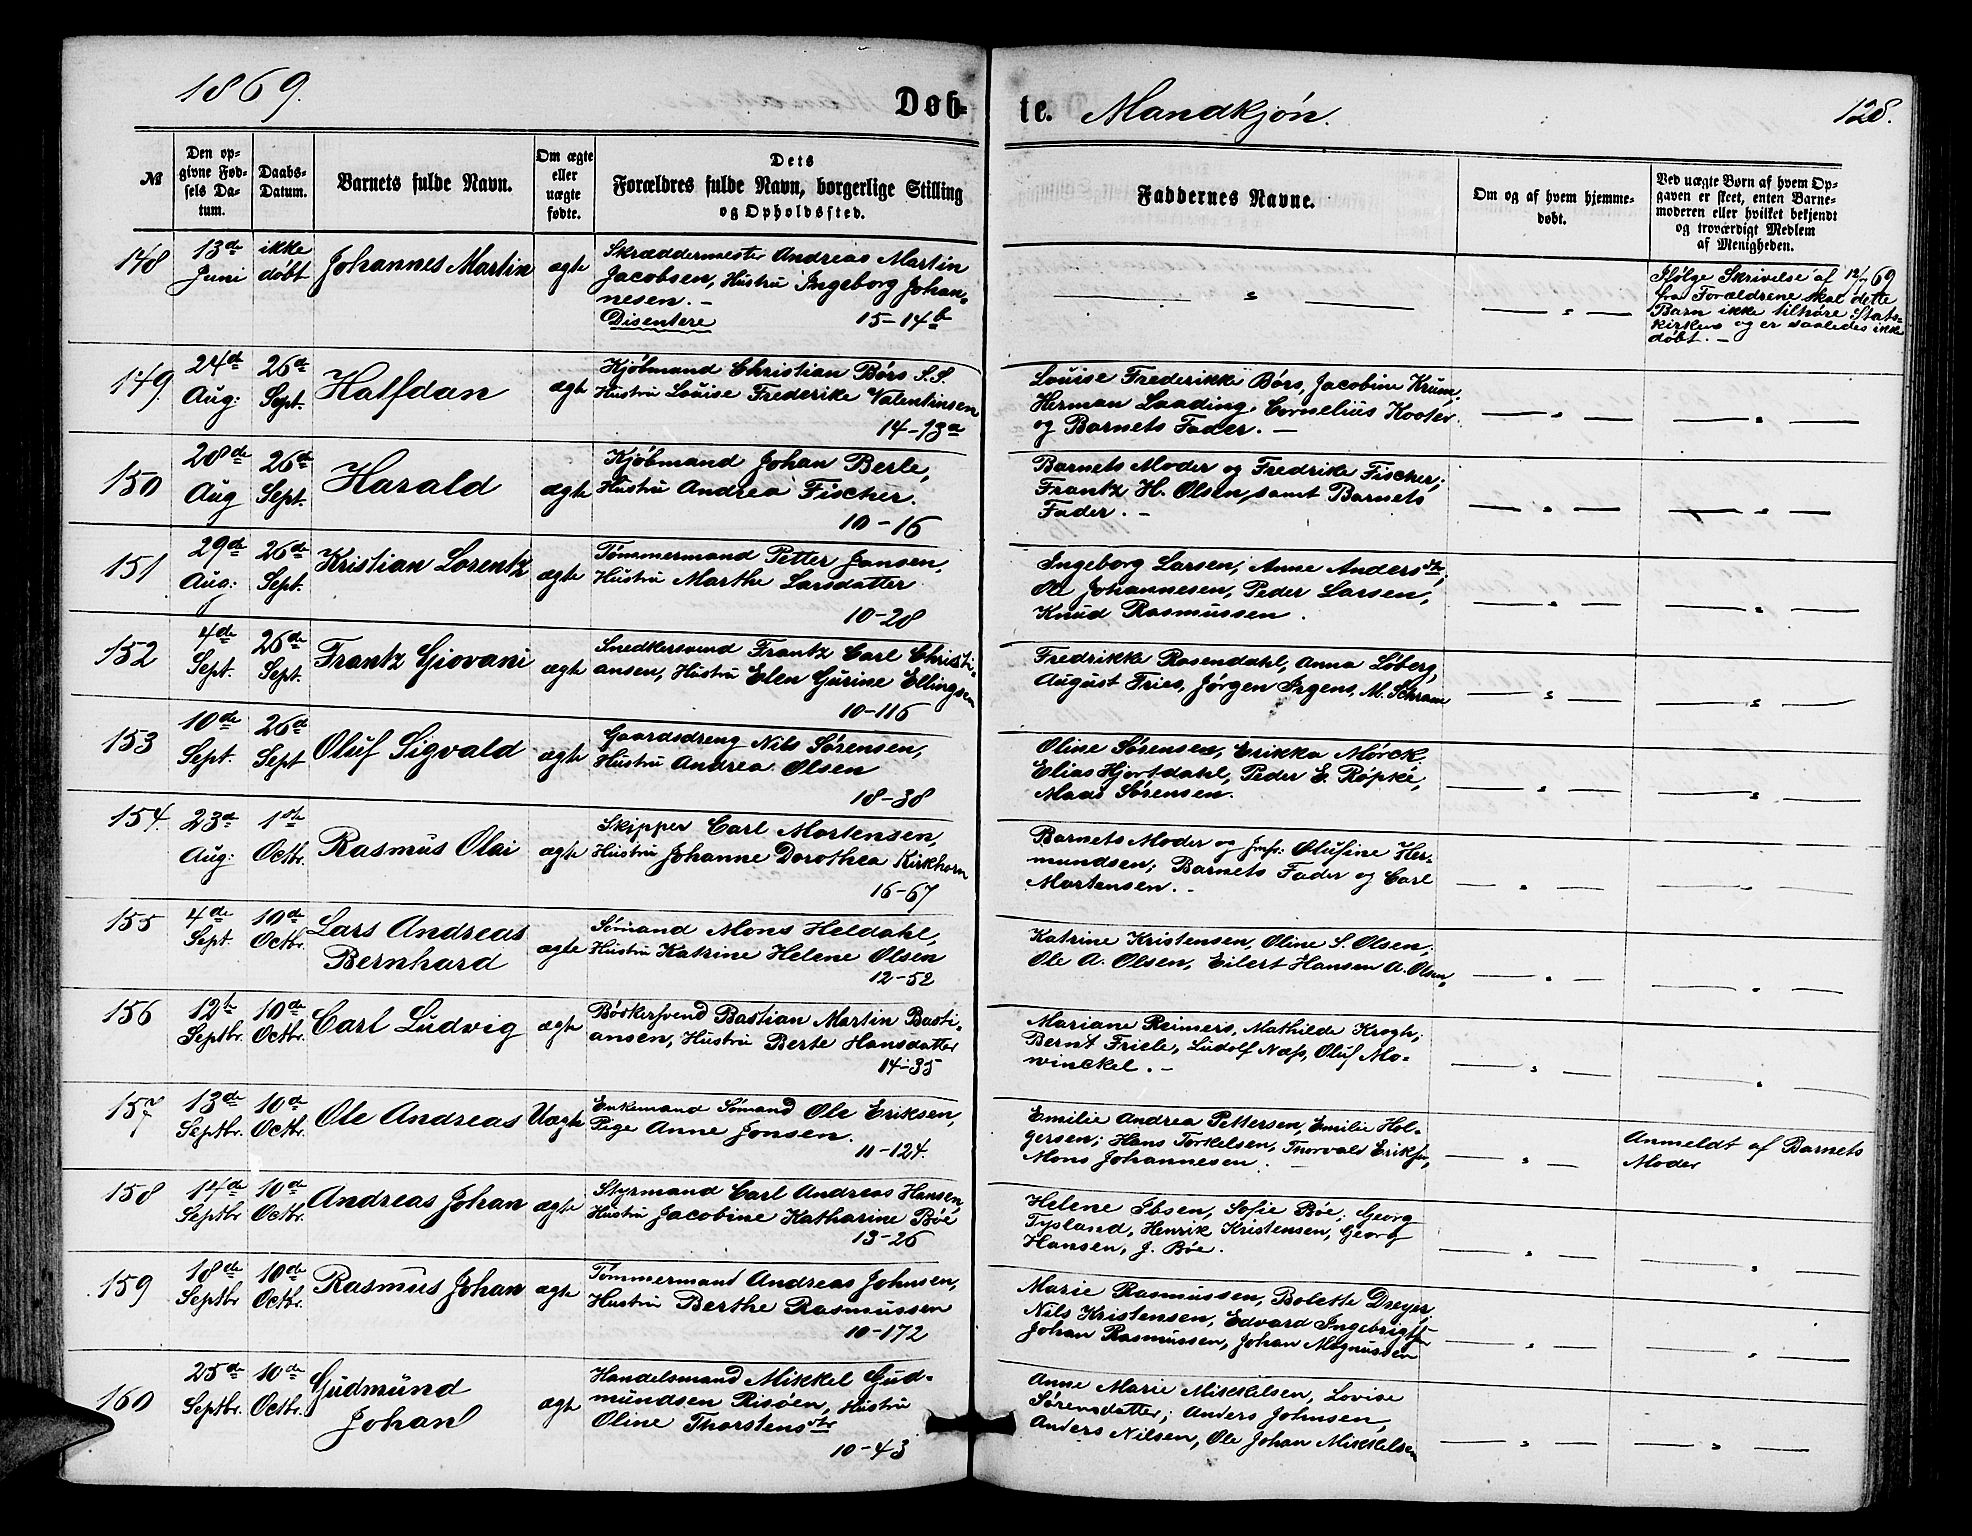 1869.
Døb-
te. Mandkjøn.
128.
№
Den op-
givne Fød-
sels Da-
tum.
Daabs-
Datum.
Barnets fulde Navn.
Om ægte
eller
uægte
fødte.
Dets
Forældres fulde Navn, borgerlige Stilling
og Opholdssted.
Faddernes Navne.
Om og af hvem hjemme-
døbt.
Ved uægte Børn af hvem Op-
gaven er skeet, enten Barne-
moderen eller hvilket bekjendt
og troværdigt Medlem
af Menigheden.
148
13de
Juni
ikke
døbt
Johannes Martin
ægte
Skræddermester Andreas Martin
Jacobsen, Hustru Ingeborg Johan-
nesen. —
Disentere 15-14b
— " —
— " —
Ifølge Skrivelse af 12/7 69
fra Forældrene skal dette
Barn ikke tilhøre Stats-
kirken og er saaledes ikke
døbt. —
149
24de
Aug:
26de
Sept.
Halfdan
ægte
Kjøbmand Christian Børs S.S.
Hustru Louise Frederike Valentinsen
14-13a
Louise Frederikke Børs, Jacobine Krum,
Herman Laading, Cornelius Kooter
og Barnets Fader. —
— " —
— " —
150
28de
Aug
26de
Sept.
Harald
ægte
Kjøbmand Johan Berle,
Hustru Andrea Fischer.
10-16
Barnets Moder og Fredrike Fischer;
Frantz H. Olsen, samt Barnets
Fader. —
— " —
— " —
151
29de
Aug:
26de
Sept.
Kristian Lorentz
ægte
Tømmermand Petter Jansen,
Hustru Marthe Larsdatter
10-28
Ingeborg Larsen, Anne Andersdtr,
Ole Johannesen, Peder Larsen,
Knud Rasmussen.
— " —
— " —
152
4de
Sept.
26de
Sept.
Frantz Giovani
ægte
Snedkersvend Frantz Carl Christi-
ansen, Hustru Elen Gurine Ellingsen
10-116
Fredrikke Rosendahl, Anna Løberg,
August Fries, Jørgen Irgens, M. Schram
— " —
— " —
153
10de
Sept.
26de
Sept
Oluf Sigvald
ægte
Gaardsdreng Nils Sørensen,
Hustru Andrea Olsen
18-38
Oline Sørensen, Erikka Mørck,
Elias Hjortdahl, Peder E. Røpke,
Maas Sørensen.
— " —
— " —
154.
23de
Aug:
1ste
Octbr.
Rasmus Olai
ægte
Skipper Carl Mortensen,
Hustru Johanne Dorothea Kirkhorn
16-67
Barnets Moder og Jmfr: Olufine Her-
mundsen; Barnets Fader og Carl
Martensen. —
— " —
— " —
155
4de
Sept.
10de
Octbr.
Lars Andreas
Bernhard
ægte
Sømand Mons Heldahl,
Hustru Katrine Helene Olsen
12-52
Katrine Kristensen, Oline S. Olsen,
Ole A. Olsen, Eilert Hansen A. Olsen,
— " —
— " —
156
12te
Septbr.
10de
Octbr.
Carl Ludvig
ægte
Bøskersvend Bastian Martin Basti-
ansen, Hustru Berte Hansdatter
14-35
Mariane Reimers, Mathilde Krogh,
Bernt Friele, Ludolf Næss, Oluf Mo-
winckel. —
— " —
— " —
157
13de
Septbr.
10de
Octbr.
Ole Andreas
Uægte
Enkemand Sømand Ole Eriksen,
Pige Anne Jonsen.
11-124.
Emilie Andrea Pettersen, Emilie Hol-
gersen; Hans Torkelsen, Thorvald Eriksen,
Mons Johannesen. —
— " —
Anmeldt af Barnets
Moder
158
14de
Septbr
10de
Octbr.
Andreas Johan
ægte
Styrmand Carl Andreas Hansen,
Hustru Jacobine Katharine Bøe
13-26
Helene Ibsen, Sofie Bøe, Georg
Tysland, Henrik Kristensen, Georg
Hansen, J. Bøe.
— " —
— " —
159
18de
Septbr
10de
Octbr.
Rasmus Johan
ægte
Tømmermand Andreas Johnsen,
Hustru Berthe Rasmussen
10-172
Marie Rasmussen, Bolette Dreyer,
Nils Kristensen, Edvard Ingebrigtsen
Johan Rasmussen, Johan Magnussen
— " —
— " —
160
25de
Septbr.
10de
Octbr.
Gudmund
Johan
ægte
Handelsmand Mikkel Gud-
mundsen Risøen, Hustru
Oline Thorstensdtr
10-43
Anne Marie Mikkelsen, Lovise
Sørensdatter; Anders Johnsen,
Anders Nilsen, Ole Johan Mikkelsen
— " —
— " —